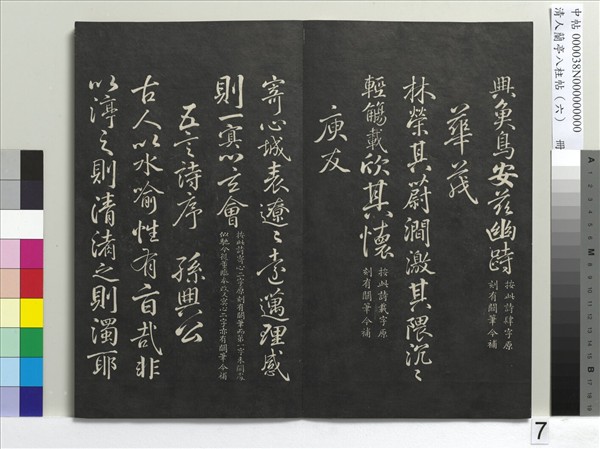 中帖 000038N000000000
清人蘭亭八柱帖（六） 冊
興魚鳥安茲幽跱 按此詩肆字原
刻有闕筆今補
華茂
林榮其蔚澗激其隈汎〻
輕觴載欣其懷 按此詩載字原
刻有闕筆今補
庾友
寄心域表遼〻遠邁理感
則一冥以玄會 按此詩寄心二字原刻有闕筆
二字亦有闕筆今補
五言詩序 孫興公
古人以水喻性有旨哉非
以渟之則清淆之則濁耶
7